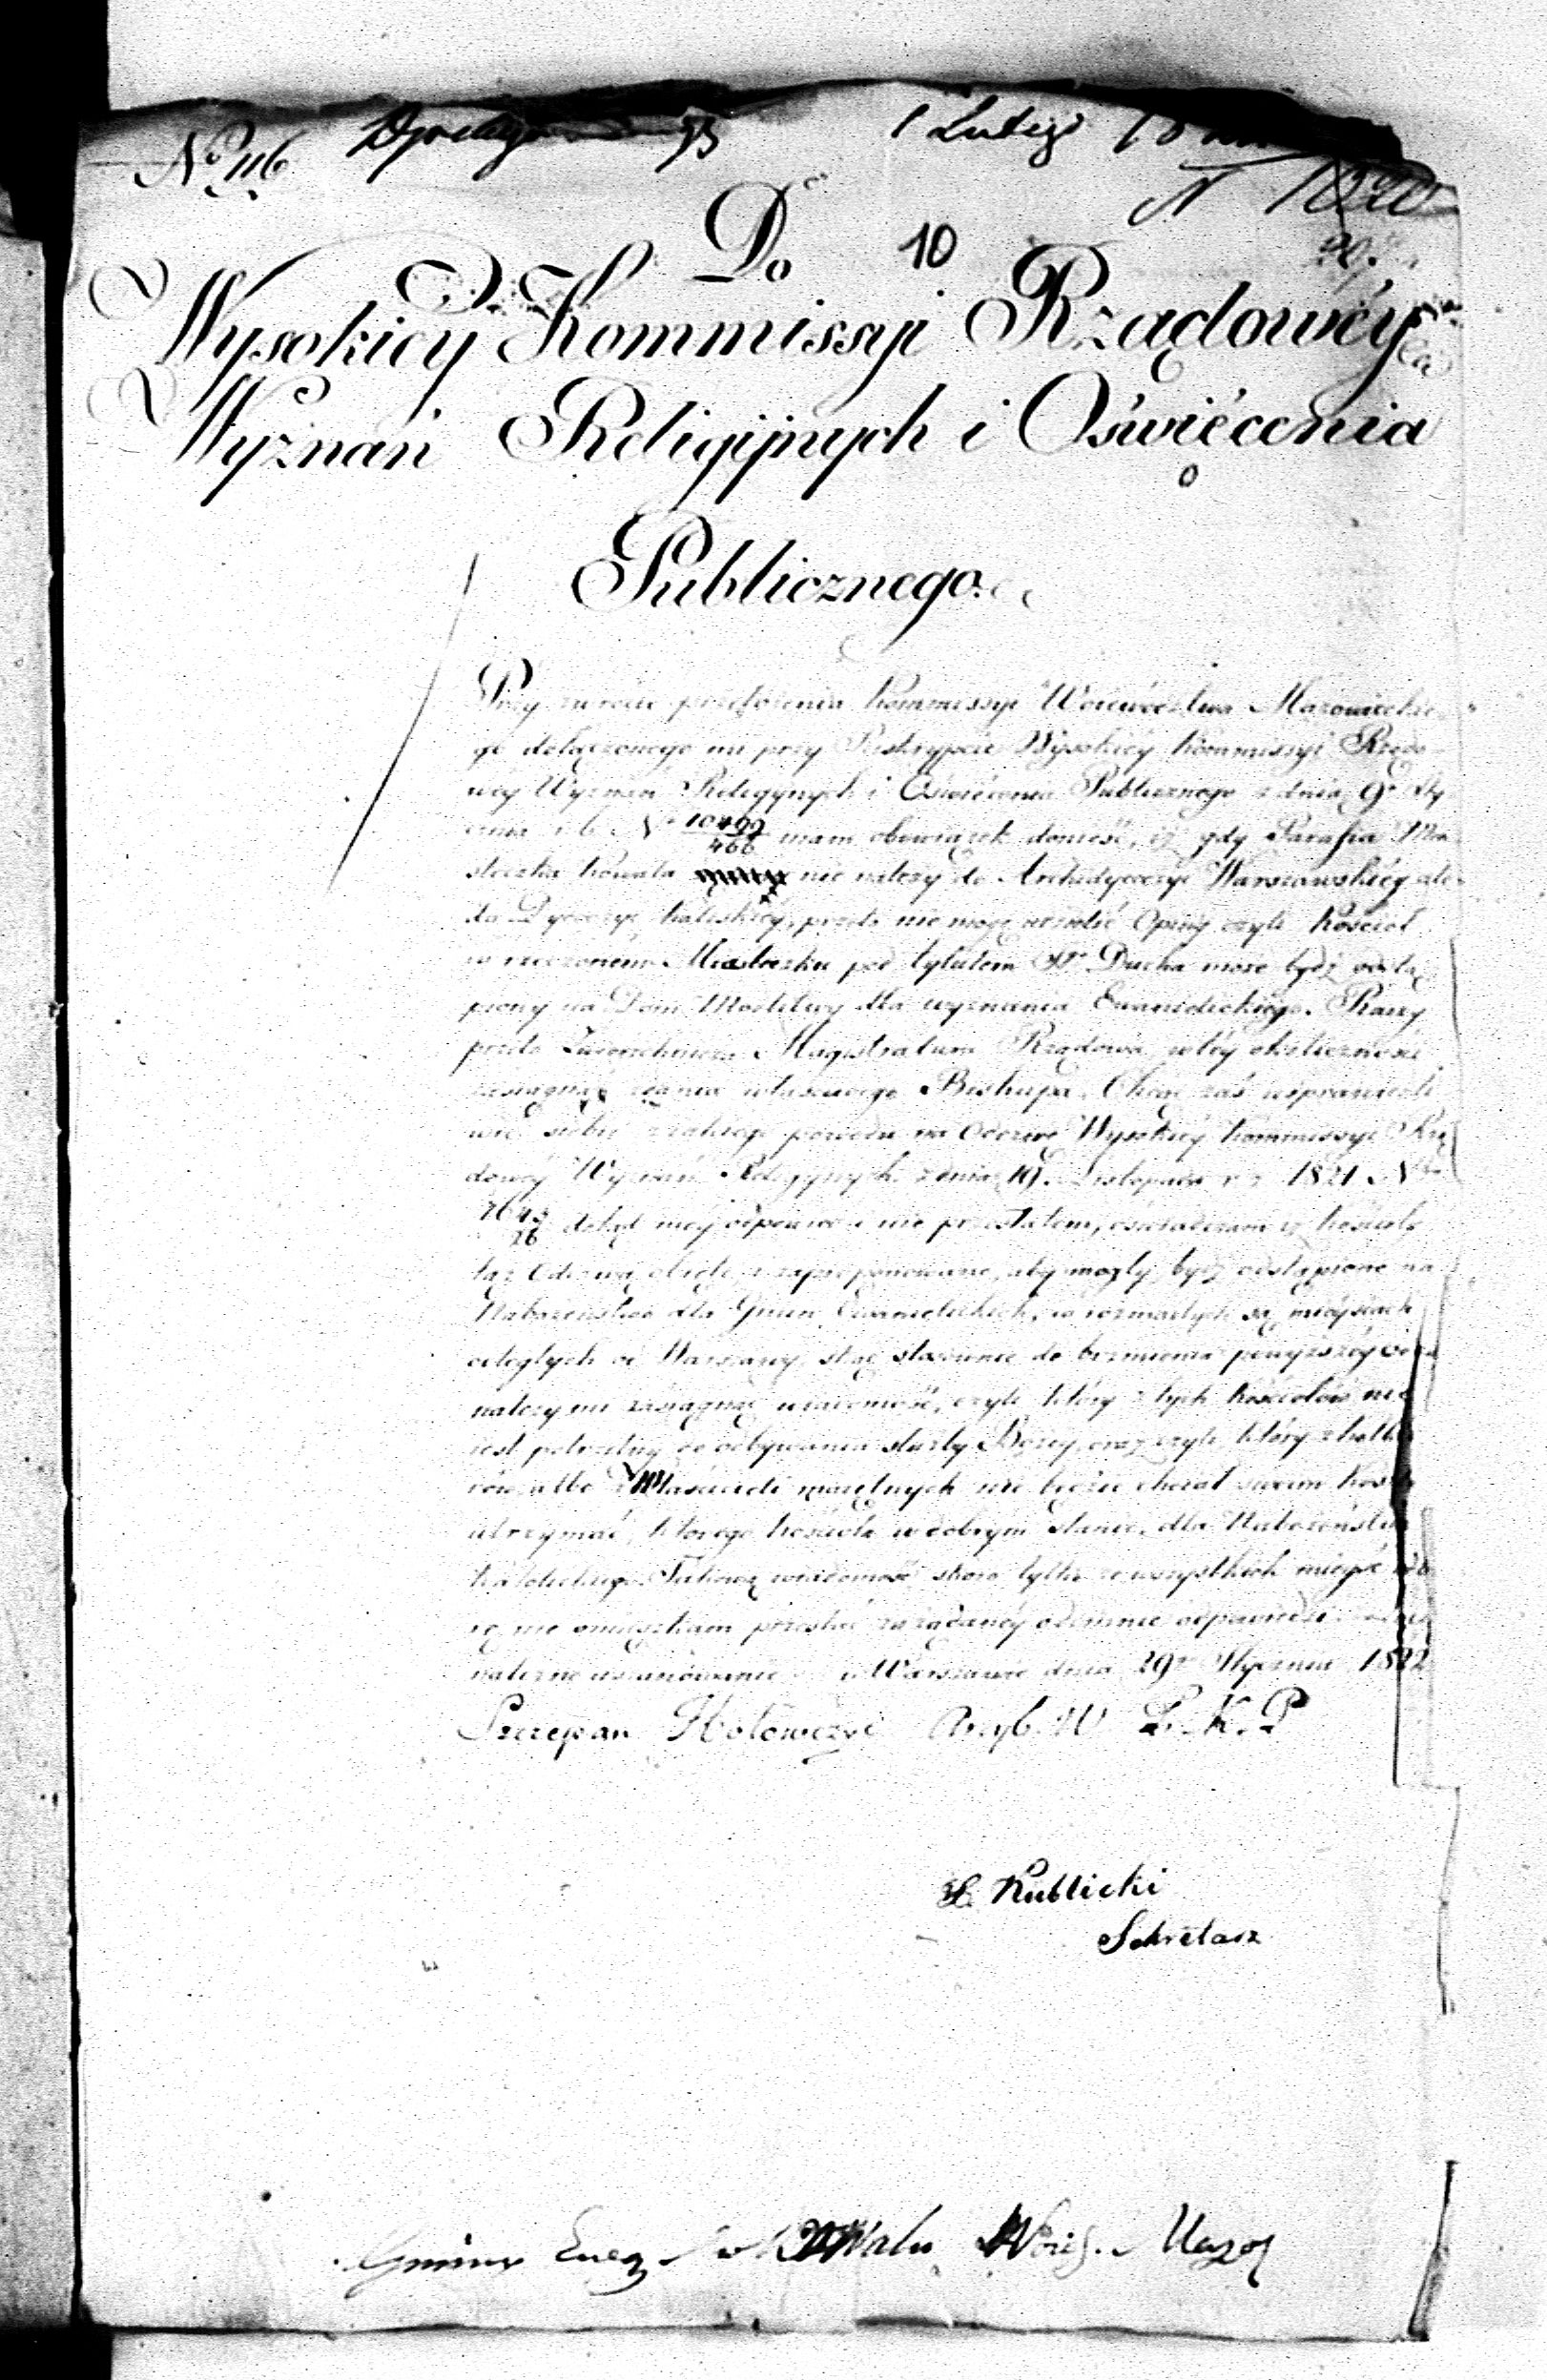 No 116
1 Lutego
N 1020
Do 10
Wysokiey Kommissyi Rządowéy
Wyznań Religijnych i Oświécenia
Publicznego.
Przy zwrocie przełożenia Kommissyi Województwa Mazowieckie-
go dołączonego mi przy Reskrypcie Wysokiéy Kommissyi Rządo-
wéy Wyznań Religijnych i Oświécenia Publicznego z dnia 9o Sty
cznia r. b. No 10499/466 mam obowiązek donieść, iż gdy Parafia Mia
steczka Kowala nie należy do Archidyecezyi Warszawskiéy ale
do Dyecezyi Kaliskiéy, przeto nie mogę udzielić Opinij czyli Kościoł
w rzeczonem Miasteczku pod tytułem So Ducha może bydź odstą
piony na Dom Modlitwy dla wyznania Ewanielickiégo. Raczy
przeto Zwierzchnicza Magistratura Rządowa w téy okoliczności
zasiągnąć zdania własciwego Biskupa. Chcąc zaś usprawiedli
wić siebie z jakiego powodu na Odezwę Wysokiéy Kommissyi Rzą
dowéy Wyznań Religijnych z dnia 19. Listopada r. z. 1821 Nro
dotąd méy odpowiedzi nie przesłałem, oświadczam iż kościoły
tąż Odezwą objęte i zaproponowane, aby mogły bydź odstąpione na
Nabożeństwo dla Gmin Ewanielickich, w rozmaitych są mieyscach
odległych od Warszawy, stąd stosownie do brzmienia powyższéy
należy mi zasiągnąć wiadomość, czyli który z tych kościołów nie
jest potrzebny do odbywania służby Bożey, oraz czyli który z kolla
rów albo Właścicieli majętnych nie będzie chciał swoim kosztem
utrzymać którego kościoła w dobrym stanie, dla Nabożeństwa
katolickiego. Takową wiadomość skoro tylko z wszystkich mieysc odbio
rę, nie omieszkam przesłać żądanéy odemnie odpowiedzi.
należne uszanowanie w Warszawie dnia 29o Stycznia 1822
Szczepan Hołowczyc Arcyb. W P. K. P
Kublicki
Sekretarz
Gmina Ewang w Kowalu Woje. Mazo